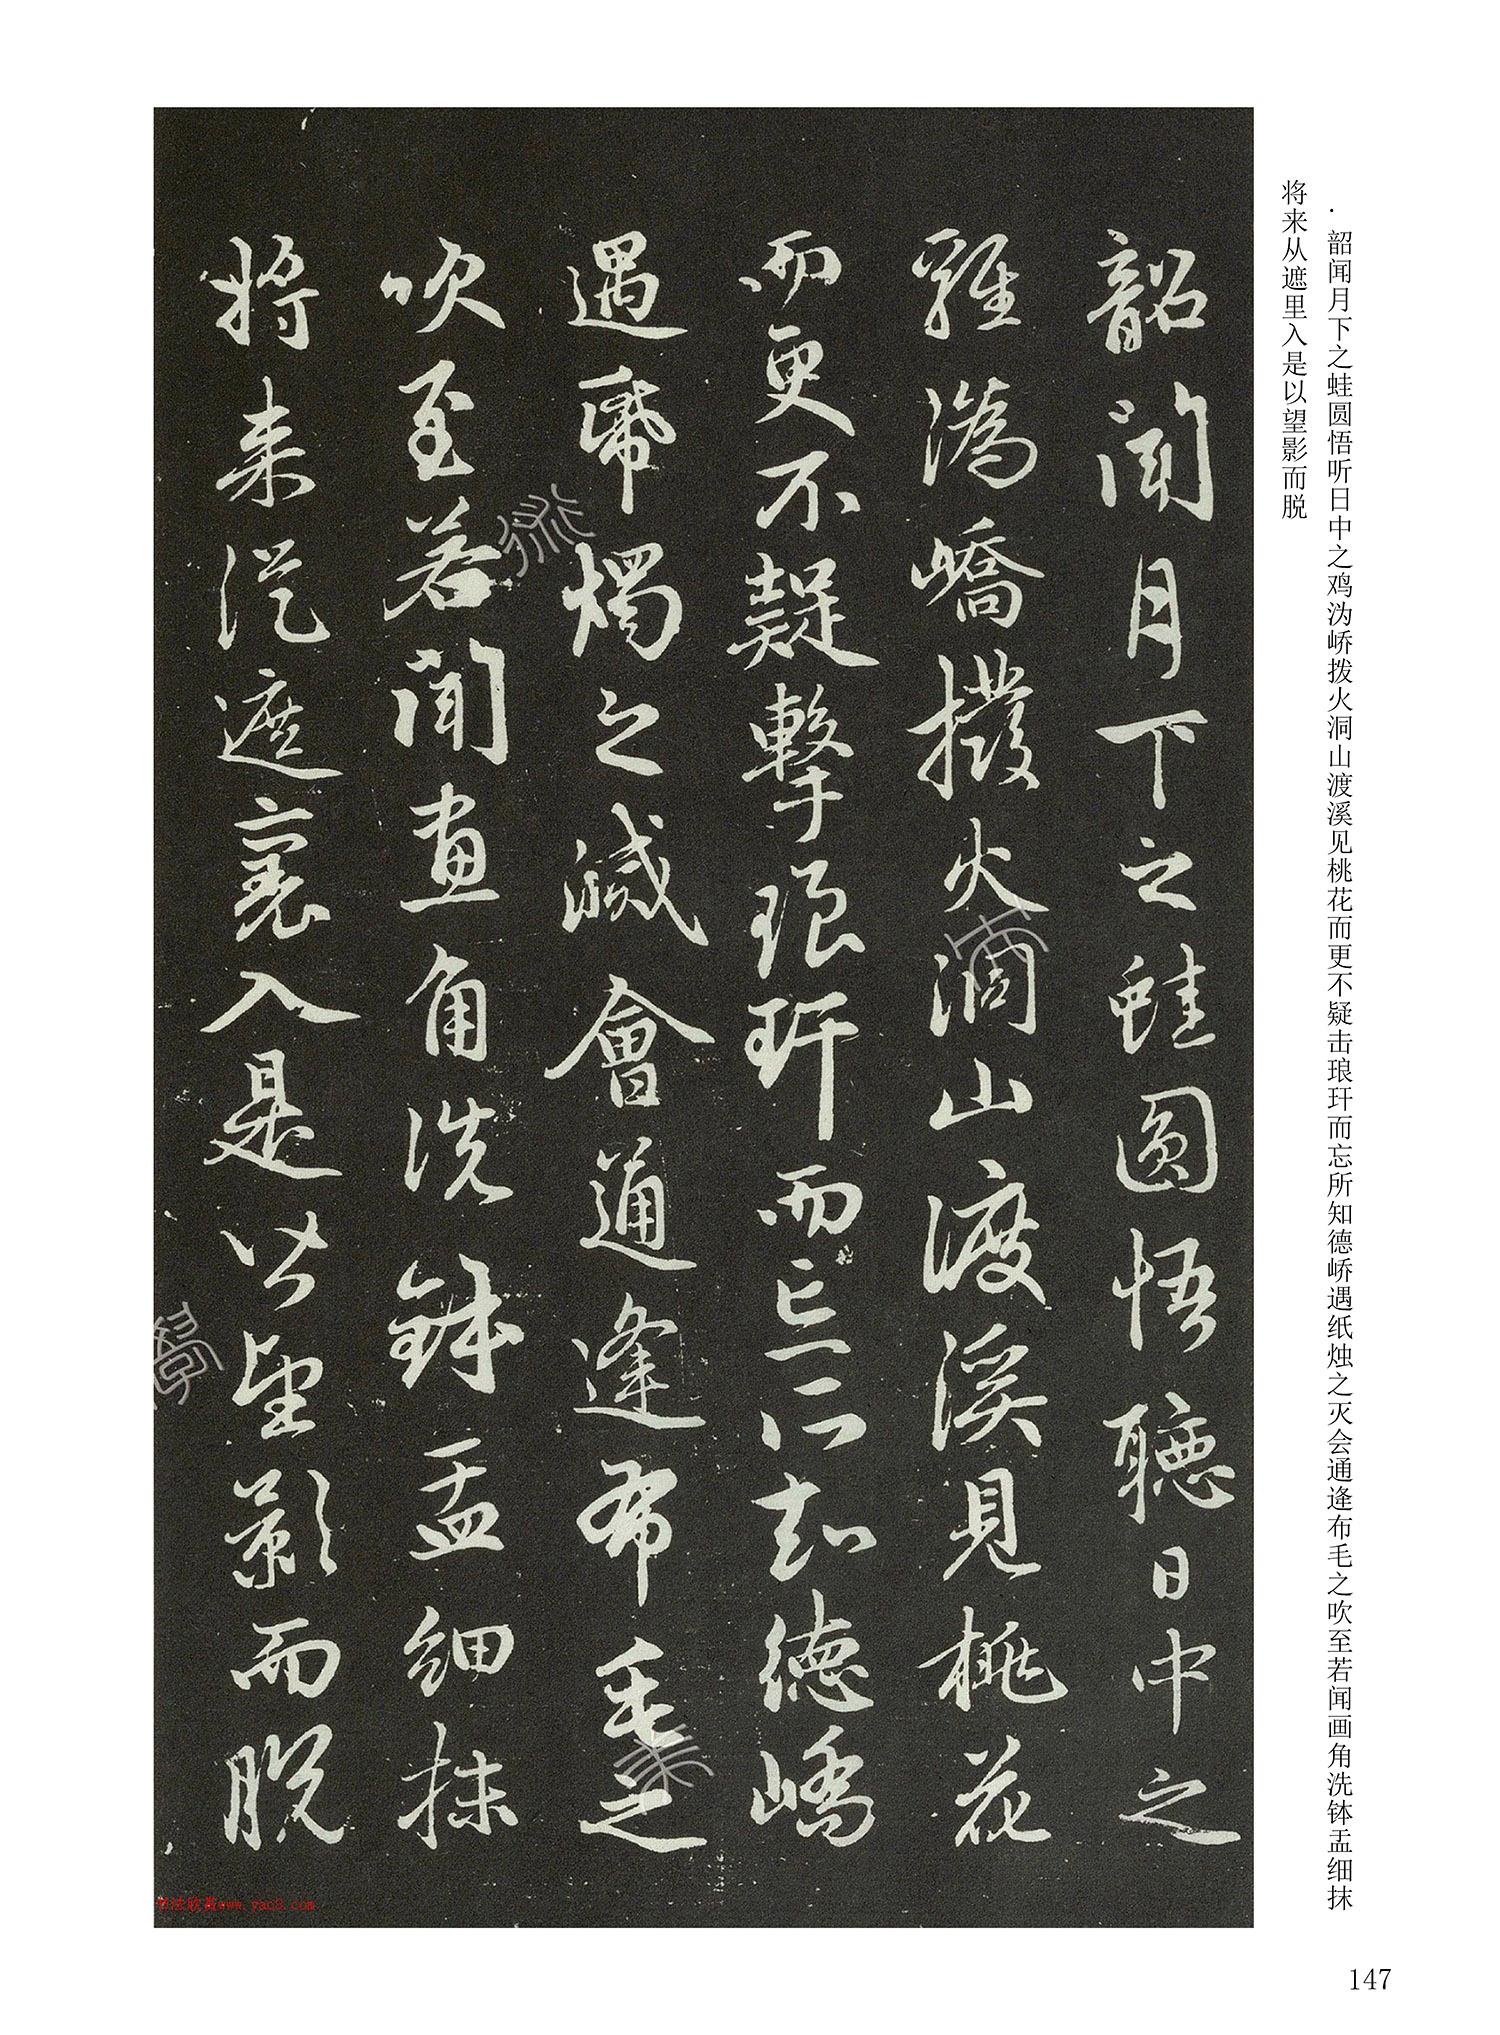 ·韶闻月下之蛙圆悟听日中之鸡沩峤拨火洞山渡溪见桃花而更不疑击琅玕而忘所知德峤遇纸烛之灭会通逢布毛之吹至若闻画角洗钵盂细抹
将来从遮里入是以望影而脱
韶聞月下之蛙圓悟聽日中之
雞溈嶠撥火洞山渡溪見桃花
而更不疑擊琅玕而忘所知德嶠
遇帋燭之滅會通逢布毛之
吹至若聞畫角洗鉢盂細抹
將來從遮裏入是以望影而脫
书法欣赏www.yac8.com
147